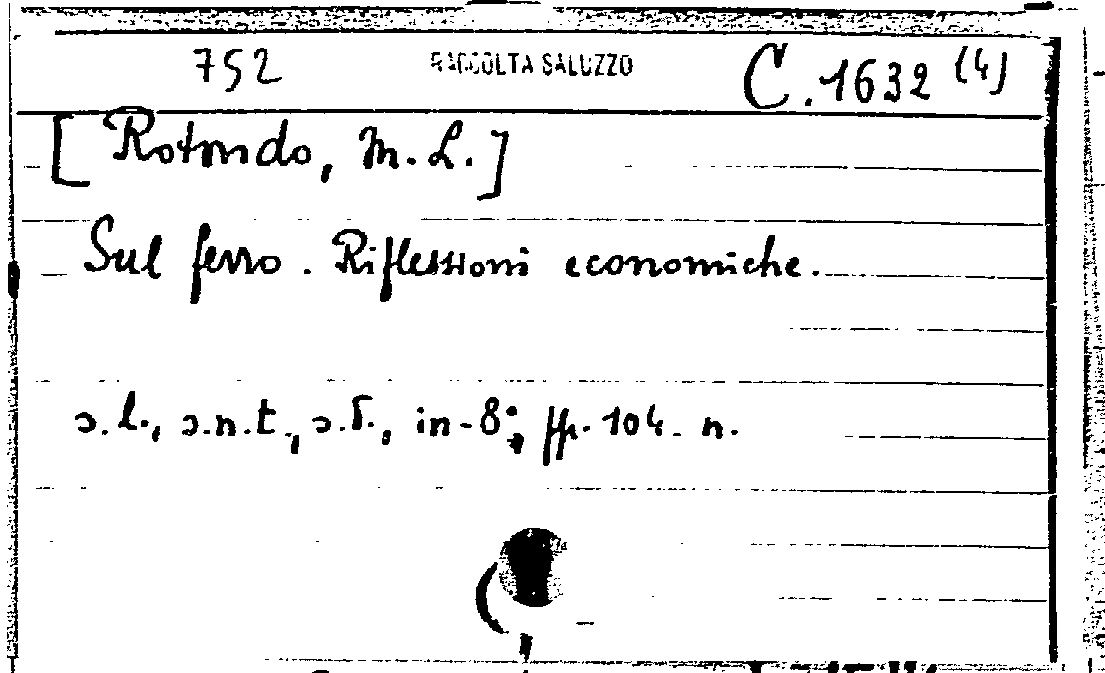 752 RACCOLTA SALUZZO C. 1632 (4)
[Rotondo, M. L.]
Sul ferro. Riflessioni economiche.
s. l., s.n.t., s.d., in-8°, pp. 104. n.